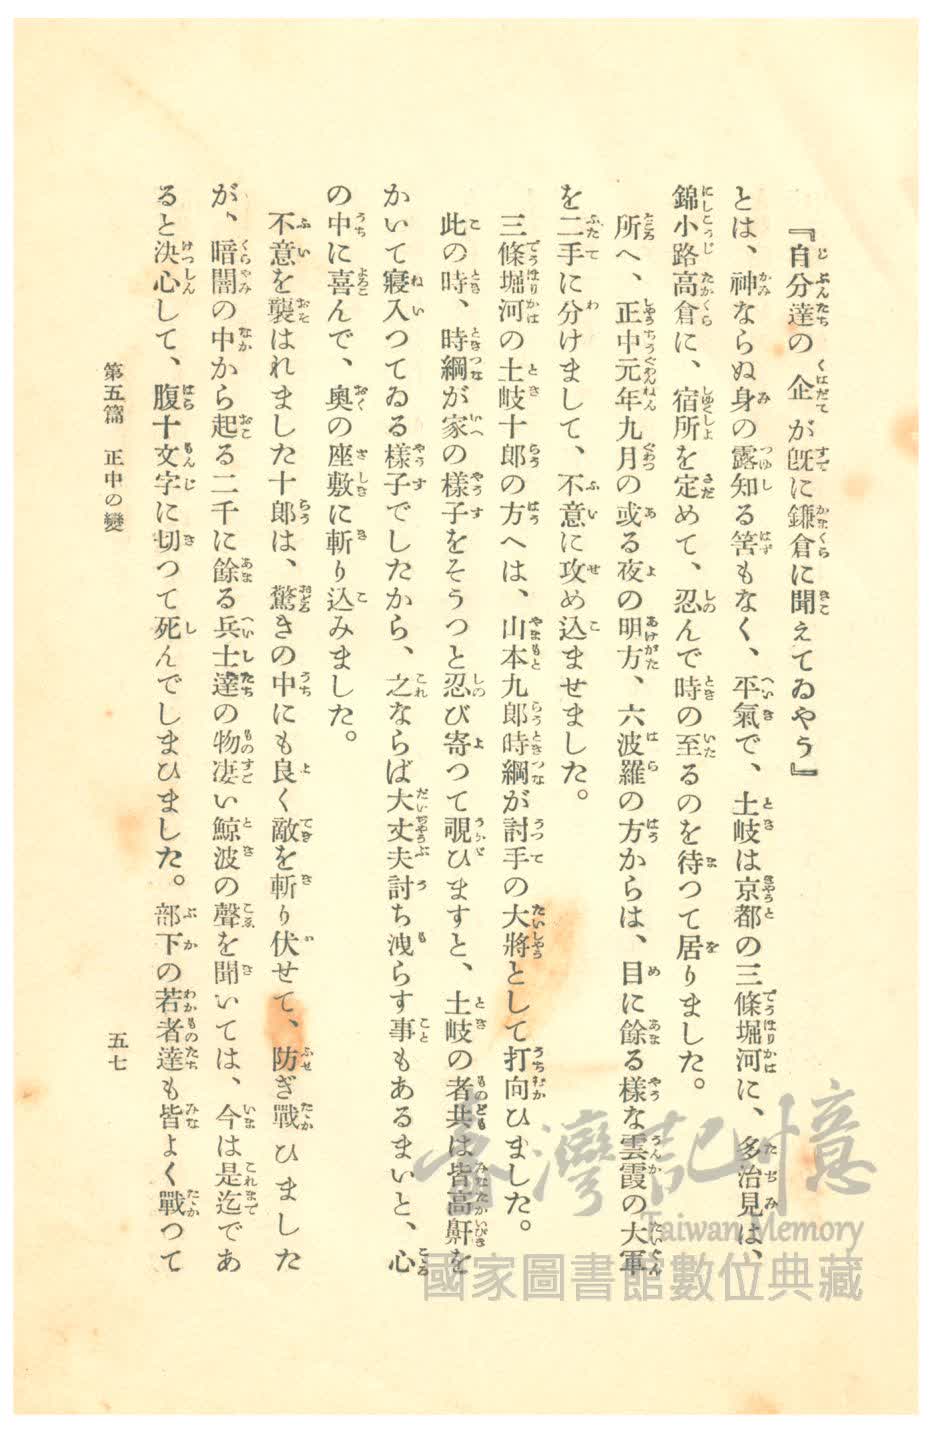 『自分達の企が既に鎌倉に聞えてゐやう』
とは、神ならぬ身の露知る筈もなく、平氣で、土岐は京都の三條堀河に、多治見は、
錦小路高倉に、宿所を定めて、忍んで時の至るのを待つて居りました。
所へ、正中元年九月の或る夜の明方、六波羅の方からは、目に餘る樣な雲霞の大軍
を二手に分けまして、不意に攻め込ませました。
三條堀河の土岐十郎の方へは、山本九郎時綱が討手の大將として打向ひました。
此の時、時綱が家の樣子をそうつと忍び寄つて覗ひますと、土岐の者共は皆高鼾を
かいて寢入つてゐる樣子でしたから、之ならば大丈夫討ち洩らす事もあるまいと、心
の中に喜んで、奧の座敷に斬り込みました。
不意を襲はれました十郎は、驚きの中にも良く敵を斬り伏せて、防ぎ戰ひました
が、暗闇の中から起る二千に餘る兵士達の物凄い鯨波の聲を聞いては、今は是迄であ
ると決心して、腹十文字に切つて死んでしまひました。部下の若者達も皆よく戰つて
第五篇 正中の變
五七
臺灣記憶
Taiwan Memory
國家圖書館數位典藏